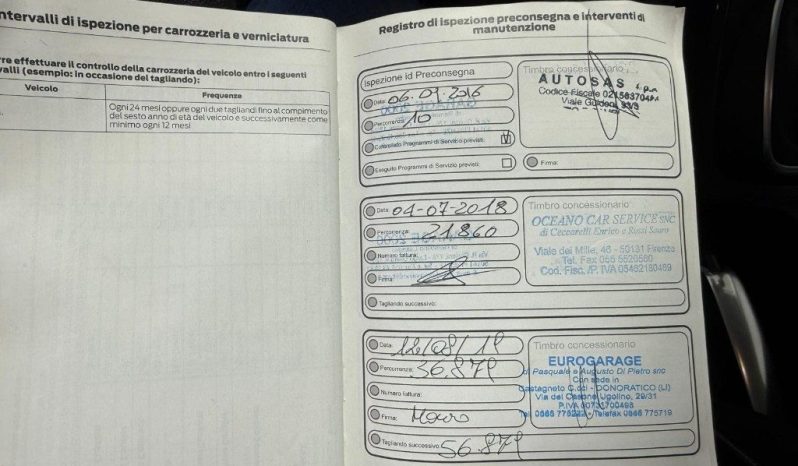 ntervalli di ispezione per carrozzeria e verniciatura
rre effettuare il controllo della carrozzeria del veicolo entro i seguenti
valli (esempio: in occasione del tagliando):
Veicolo
Frequenze
Ogni 24 mesi oppure ogni due tagliandi fino al compimento
del sesto anno di età del veicolo e successivamente come
minimo ogni 12 mesi
Registro di ispezione preconsegna e interventi di
manutenzione
Ispezione id Preconsegna
Data:
Percorrenza:
10
Controllato Programmi di Servizio previsti:
Eseguito Programmi di Servizio previsti:
Timbro concessionario
AUTOSAS s.p.a.
Codice Fiscale
Viale
Firma:
Data: 04-07-2018
Percorrenza: 21.860
Numero fattura:
Firma:
Tagliando successivo:
Timbro concessionario
OCEANO CAR SERVICE SNC
di Ceccarelli Enrico e Rossi Sauro
Viale dei Mille, 46 - 50131 Firenze
Tel. Fax 055 5520580
Cod. Fisc. /P. IVA 05482180489
Data:
Percorrenza: 36.879
Numero fattura:
Firma: Mauro
Tagliando successivo: 56.879
Timbro concessionario
EUROGARAGE
di Pasquale e Augusto Di Pietro snc
Con sede in
Castagneto C.cci - DONORATICO (LI)
Via del Casone Ugolino, 29/31
P.IVA 00731700498
Tel. 0565 775222 - Telefax 0565 775719